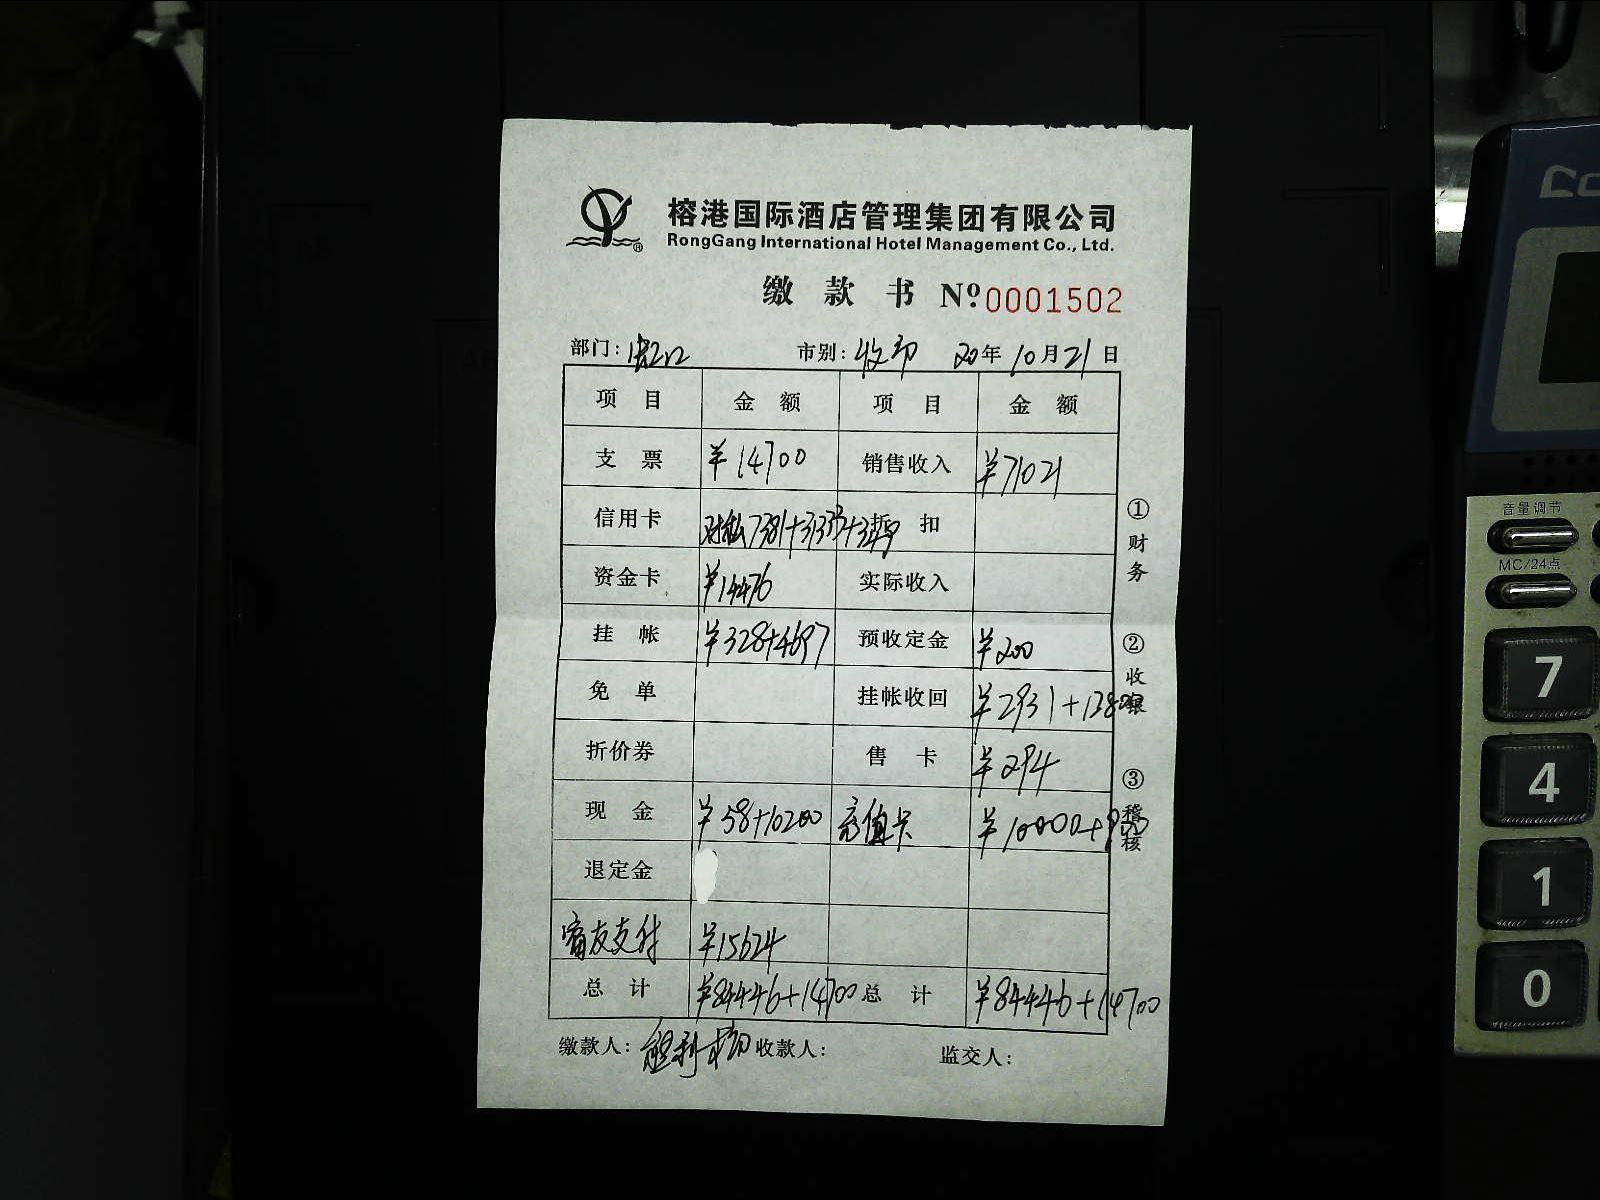 榕港国际酒店管理集团有限公司
RongGang International Hotel Management Co., Ltd.
缴 款 书 Nº 0001502
部门: 虹口 市别: 收 20年 10月 21日
项 目 金 额 项 目 金 额
支 票 ¥14700 销售收入 ¥71021
信用卡 扣
资金卡 ¥14476 实际收入
挂 帐 ¥328+4697 预收定金 ¥200
免 单 挂帐收回 ¥2931+
折价券 售 卡 ¥294
现 金 ¥58+10200 充值卡 ¥10000+
退定金
支付 ¥15624
总 计 ¥84446+14700 总 计 ¥84446+14700
缴款人: 收款人: 监交人:
①财务
②收银
③稽核
音量调节
MC/24点
7
4
1
0